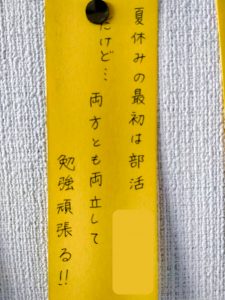 夏休みの最初は部活
だけど… 両方とも両立して
勉強頑張る!!